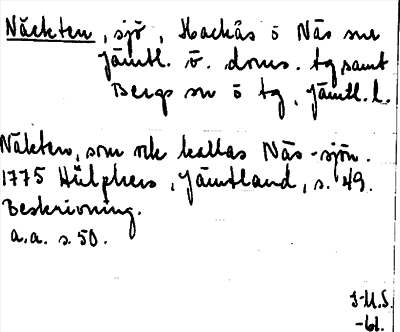 Näckten, sjö, Hackås o Näs snr
Jämtl. ö. doms. tg samt
Bergs sn o tg, Jämtl. l.
Näkten, som ock kallas Näs-sjön.
1775 Hülphers, Jämtland, s. 49.
Beskrivning.
a.a. s. 50.
I-M.S.
-61.